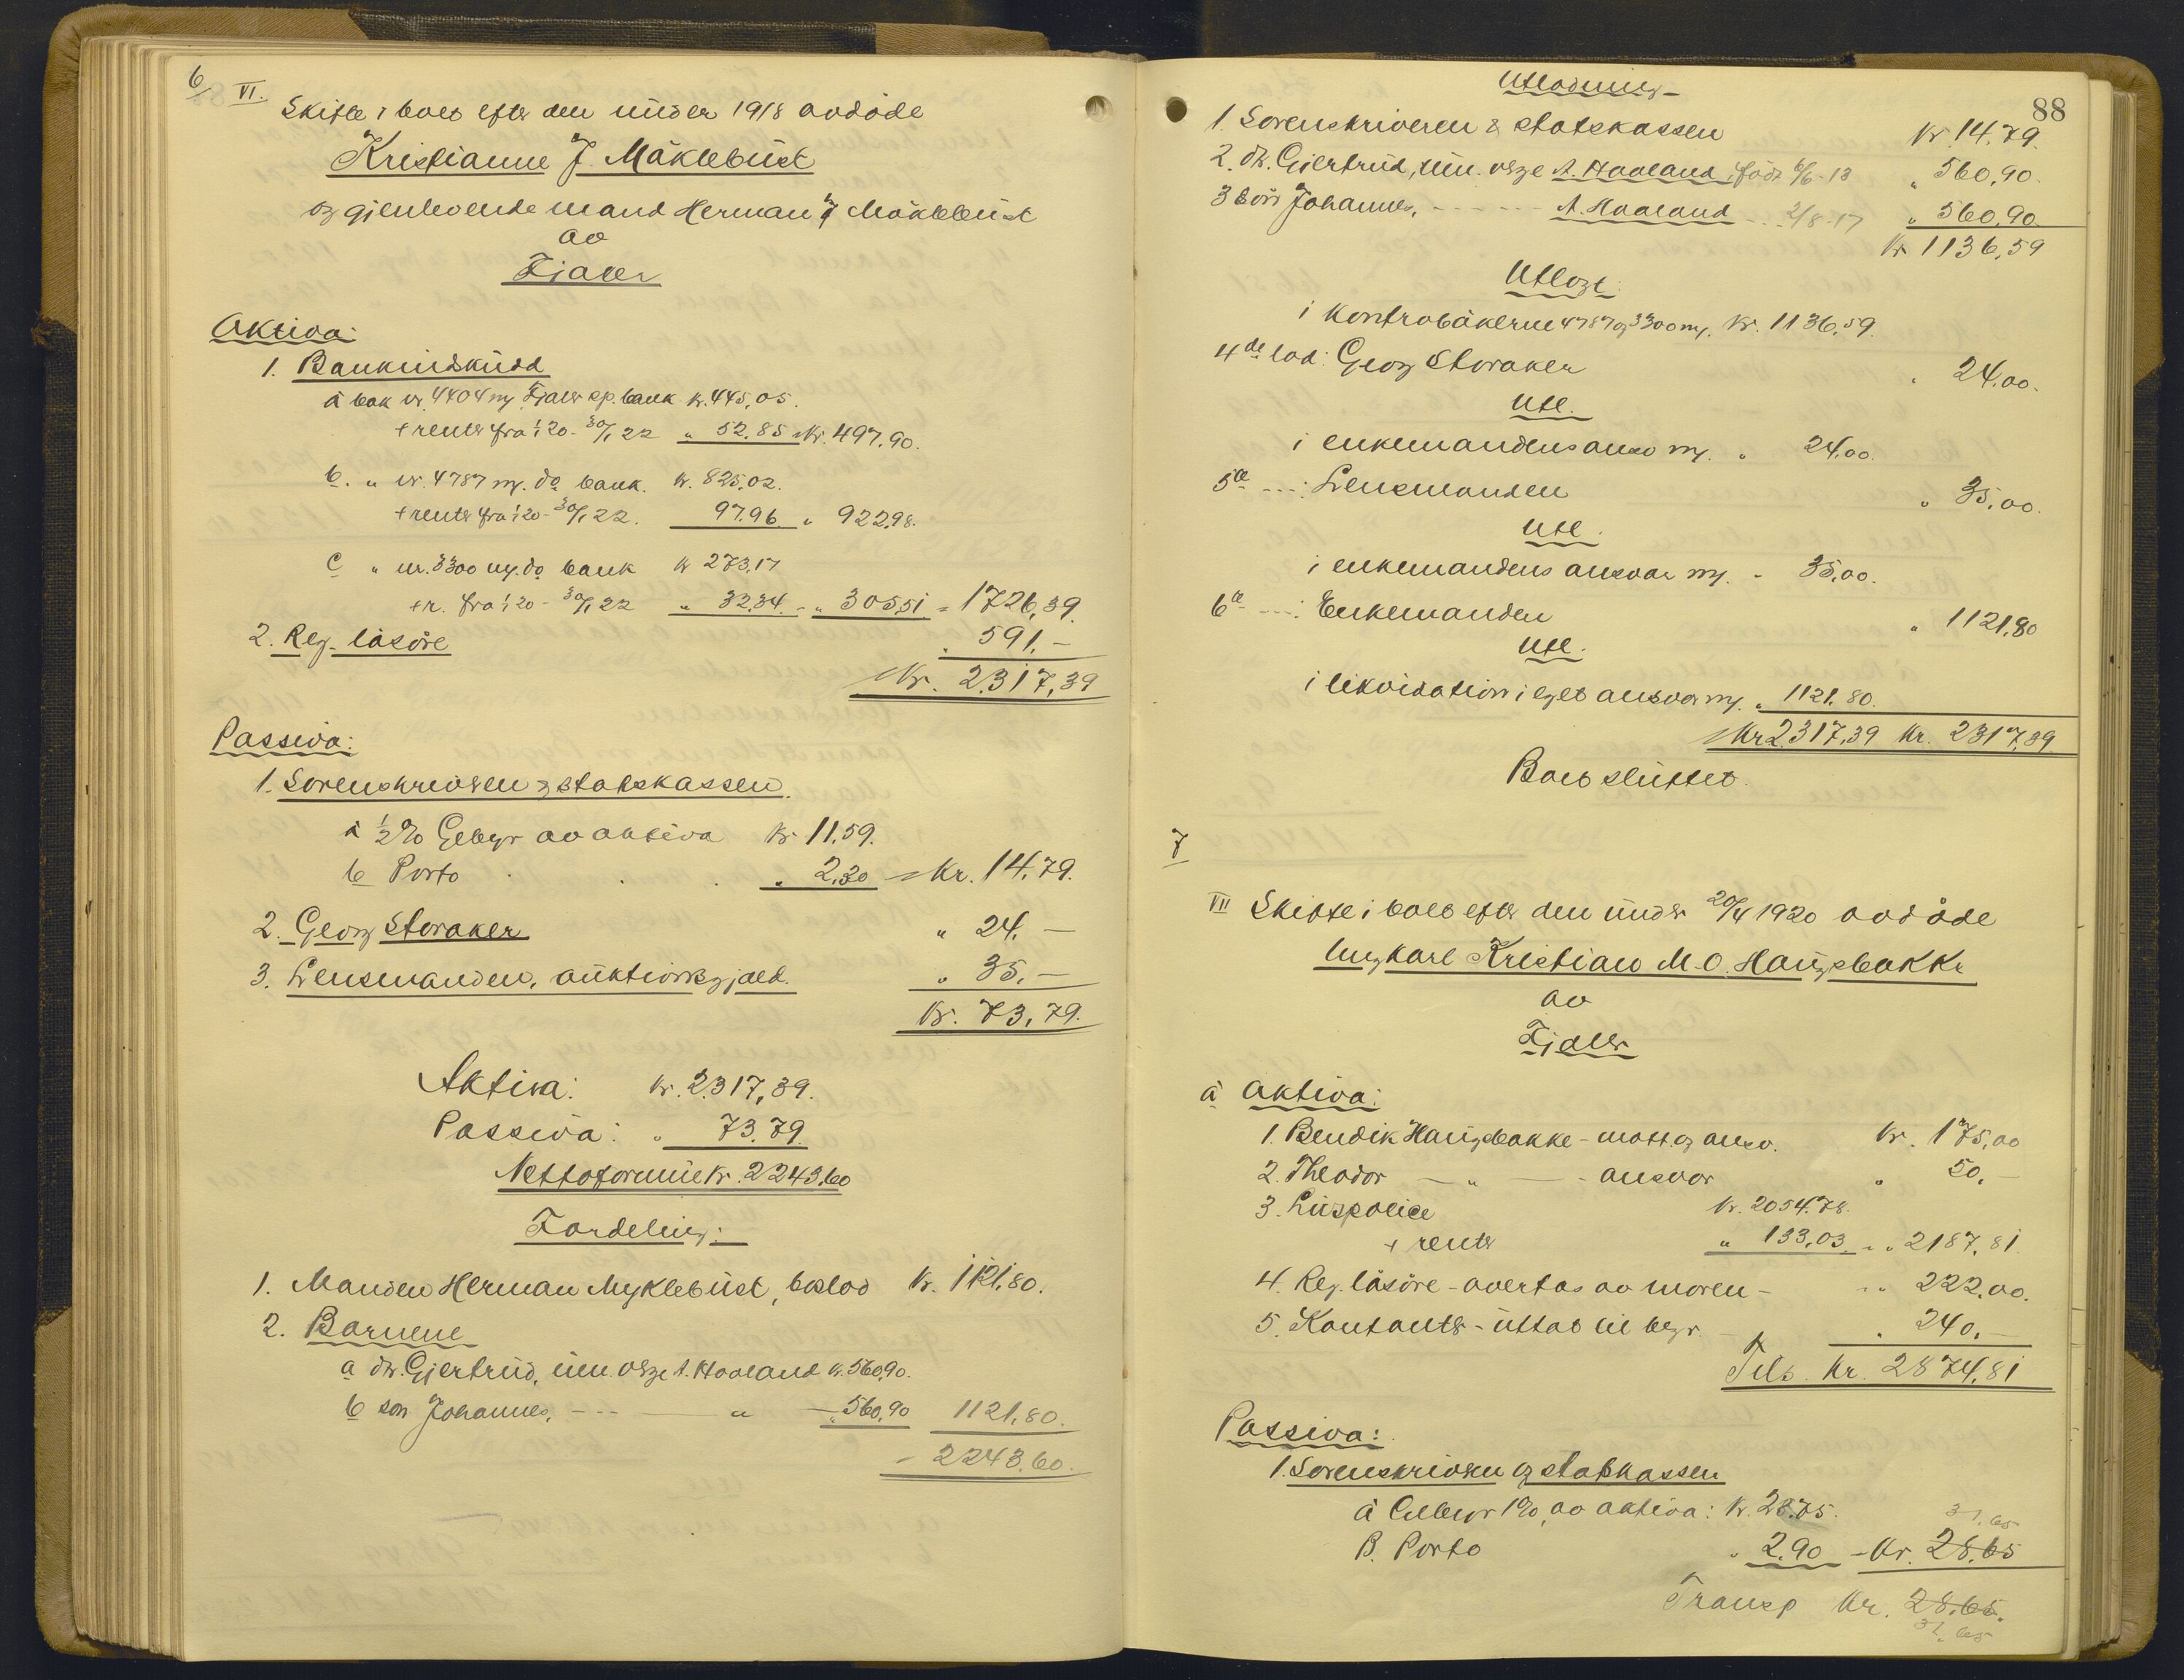 6/ VI.
Skifte i boet efter den under 1918 avdøde
Kristianne J. Mäklebust
og gjenlevende mand Herman J Mäklebust
av
Fjaler
Aktiva:
1. Bankindskudd
a bok nr. 4404 m/ Fjaler sp. bank kr. 445,05.
+ renter fra 1/1 20 - 30/1 22 " 52.85 Kr. 497.90.
b. " nr. 4787 m/. do bank. kr. 825,02.
+ renter fra 1/1 20 - 30/1 22. 97.96. " 922,98.
c " nr. 3300 m/. do bank kr 273,17
+ r. fra 1/1 20 - 30/1 22 " 32,34. - " 305,51 = 1726,39.
2. Reg. løsøre " 591,-
Kr. 2317,39
Passiva:
1. Sorenskriveren & statskassen.
a 1/2 % Gebyr av aktiva kr 11,59.
b Porto " 2,30 = Kr. 14,79.
2. Georg Storaker " 24,-
3. Lensmanden, auktionsgjæld. " 35,-
Kr. 73,79.
Aktiva: kr. 2317,39.
Passiva: " 73.79.
Nettoformue kr. 2243,60
Fordeling:
1. Manden Herman Myklebust, boslod Kr. 1121,80.
2. Barnene
a dtr. Gjertrud, um. verge A. Haaland kr. 560,90.
b søn Johannes, - - - " — " 560,90 1121,80.
- 2243,60.
88
Utlodning
1. Sorenskriveren & statskassen Kr 14.79.
2. dtr. Gjertrud, um. verge A. Haaland, født 6/6-13 " 560,90.
3 søn Johannes, - - - - A. Haaland - " 2/8-17 " 560,90.
Kr 1136,59
Utlagt:
i kontrabøkerne 4787 og 3300 m/. Kr. 1136,59.
4de lod: Georg Storaker " 24,00.
Utl.
i enkemandens ansv m/. " 24,00.
5te - - -: Lensmanden " 35,00.
Utl.
i enkemandens ansvar m/. - 35,00.
6te - - -: Enkemanden " 1121,80
Utl.
i likvidation i eget ansvar m/. " 1121,80.
Kr 2317,39 Kr. 2317,39
Boet sluttet.
7
VII Skifte i boet efter den under 20/4 1920 avdøde
Ungkarl Kristian M. O. Haugsbakke
av
Fjaler
a Aktiva:
1. Bendik Haugsbakke - mott. og ansv. Kr. 175,00
2. Theodor — " — - ansvar " 50,-
3. Livspolice kr. 2054.78.
+ renter " 133,03 - " 2187,81.
4. Reg. løsøre - overtas av moren - " 222,00.
5. Kontanter - uttat til begr. " 240,-
Tils. Kr. 2874,81
Passiva:
1. Sorenskriveren og statskassen
a Gebyr 1%, av aktiva: kr. 28.75.
B. Porto " 2,90 - Kr. 28,65
31,65
Transp Kr. 28,65.
31,65